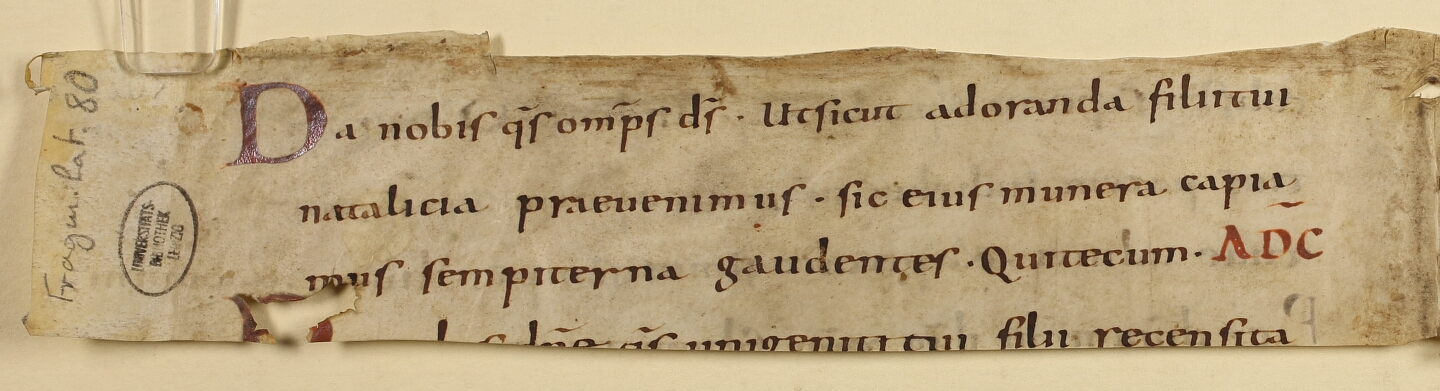 Fragm. lat. 80
UNIVERSITÄTS-
BIBLIOTHEK
LEIPZIG
Da nobis qs̄ omp̄s ds̄ · Ut sicut adoranda filii tui
natalicia praevenimus · sic eius munera capia
mus sempiterna gaudentes · Qui tecum · AD C̄
dn̄e qs̄ unigeniti tui filii recensita